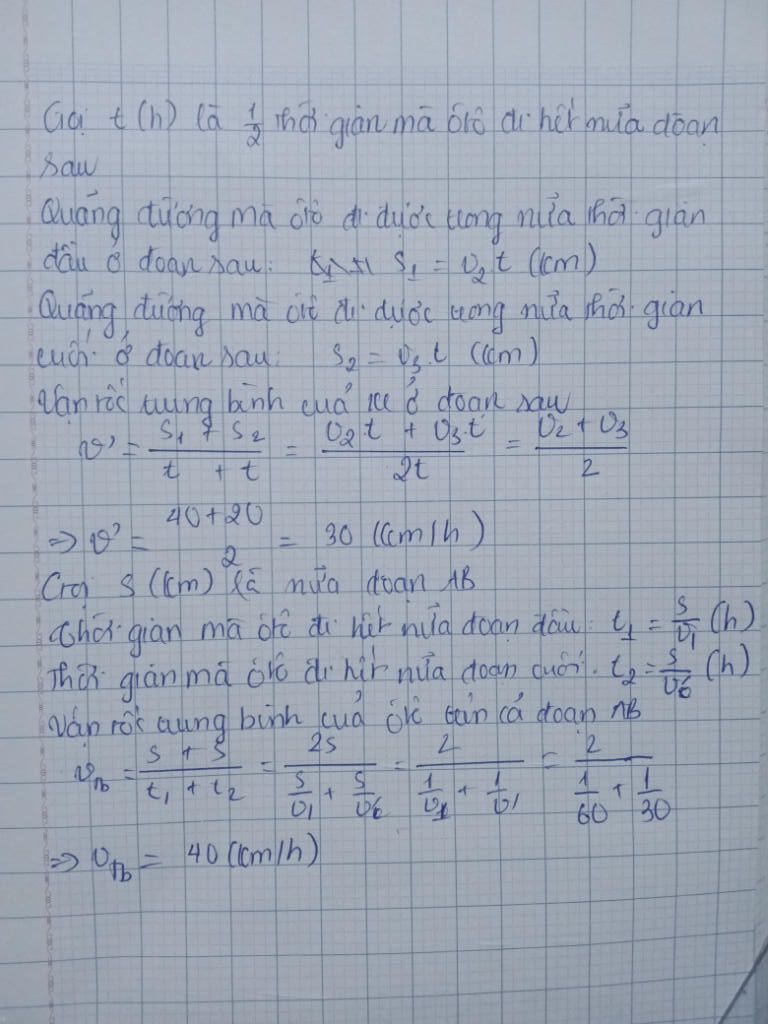 Gọi t (h) là 1/2 thời gian mà ôtô đi hết nửa đoạn
sau
Quãng đường mà ôtô đi được trong nửa thời gian
đầu ở đoạn sau: S₁ = v₂t (km)
Quãng đường mà ôtô đi được trong nửa thời gian
cuối ở đoạn sau: S₂ = v₃.t (km)
Vận tốc trung bình của xe ở đoạn sau
v' = (S₁ + S₂)/(t + t) = (v₂t + v₃.t)/2t = (v₂ + v₃)/2
=> v' = (40+20)/2 = 30 (km/h)
Gọi S (km) là nửa đoạn AB
Thời gian mà ôtô đi hết nửa đoạn đầu: t₁ = S/v₁ (h)
Thời gian mà ôtô đi hết nửa đoạn cuối: t₂ = S/v₆ (h)
Vận tốc trung bình của ôtô trên cả đoạn AB
v_tb = (S + S)/(t₁ + t₂) = 2S/(S/v₁ + S/v₆) = 2/(1/v₁ + 1/v') = 2/(1/60 + 1/30)
=> v_tb = 40 (km/h)